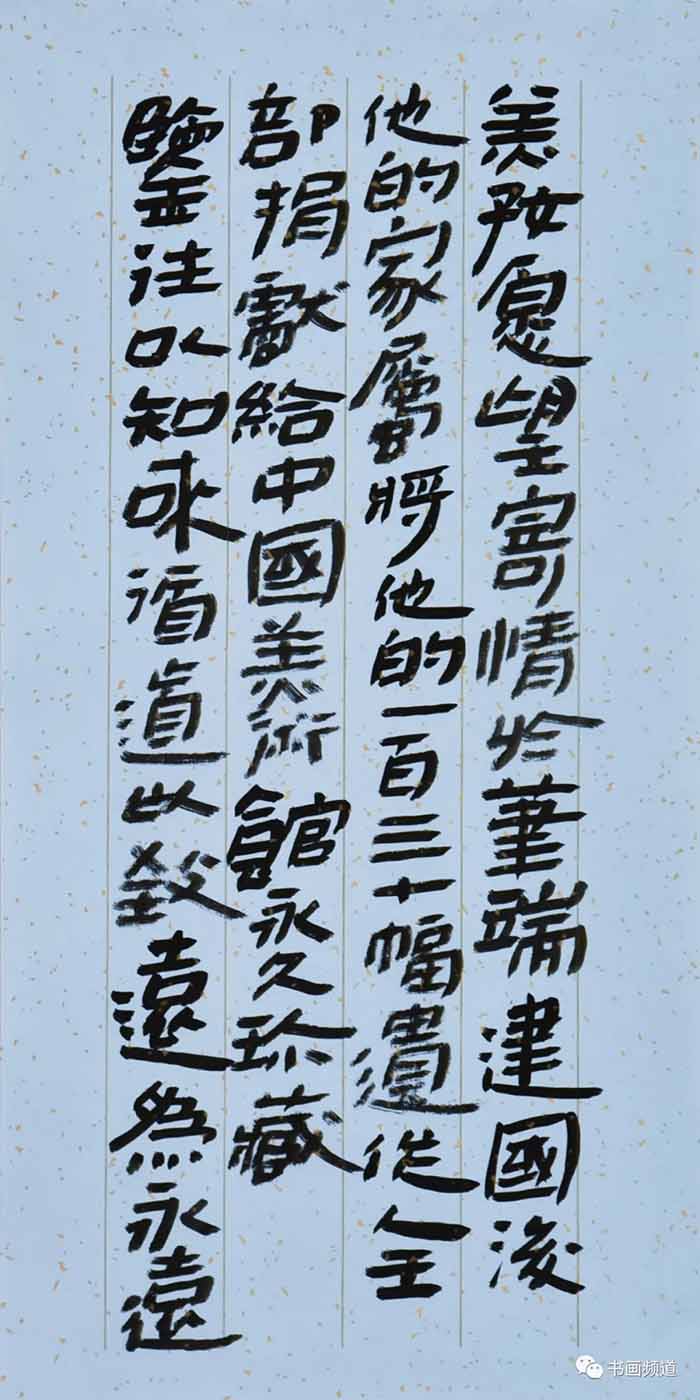 美好愿望寄情於筆端建國後
他的家屬將他的一百三十幅遺作全
部捐獻給中國美術館永久珍藏
鑒往以知來循道以致遠為永遠
书画频道